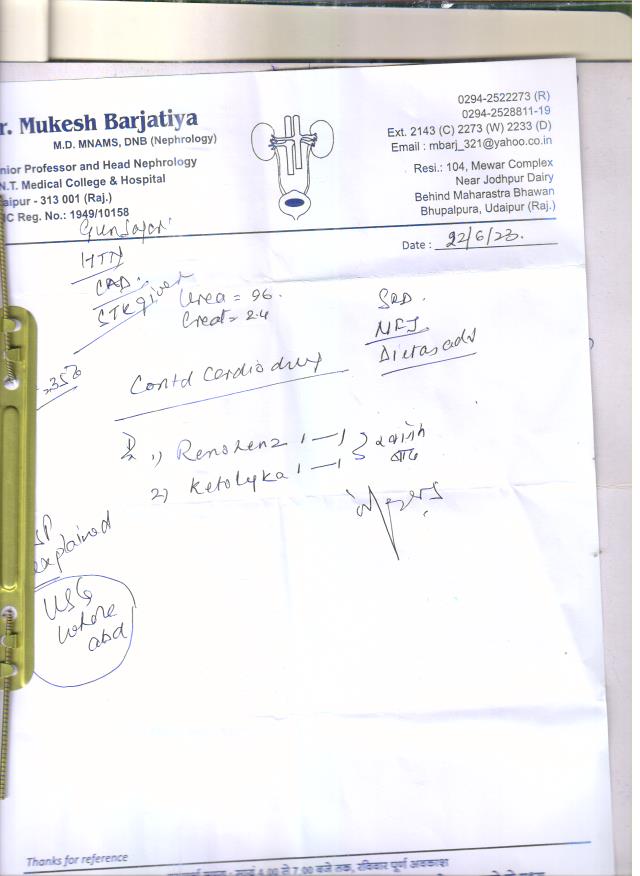 r. Mukesh Barjatiya
M.D. MNAMS, DNB (Nephrology)
nior Professor and Head Nephrology
N.T. Medical College & Hospital
aipur - 313 001 (Raj.)
C Reg. No.: 1949/10158
0294-2522273 (R)
0294-2528811-19
Ext. 2143 (C) 2273 (W) 2233 (D)
Email : mbarj_321@yahoo.co.in
Resi.: 104, Mewar Complex
Near Jodhpur Dairy
Behind Maharastra Bhawan
Bhupalpura, Udaipur (Raj.)
Date : 22/6/23.
HTN
CAD.
STK given
Urea = 96.
Creat = 2.4
Contd Cardio drug
1) Renohenz 1 — 1
2) Ketolyka 1 — 1
explained
USG
whole
abd
Thanks for reference
सायं 4.00 से 7.00 बजे तक, रविवार पूर्ण अवकाश